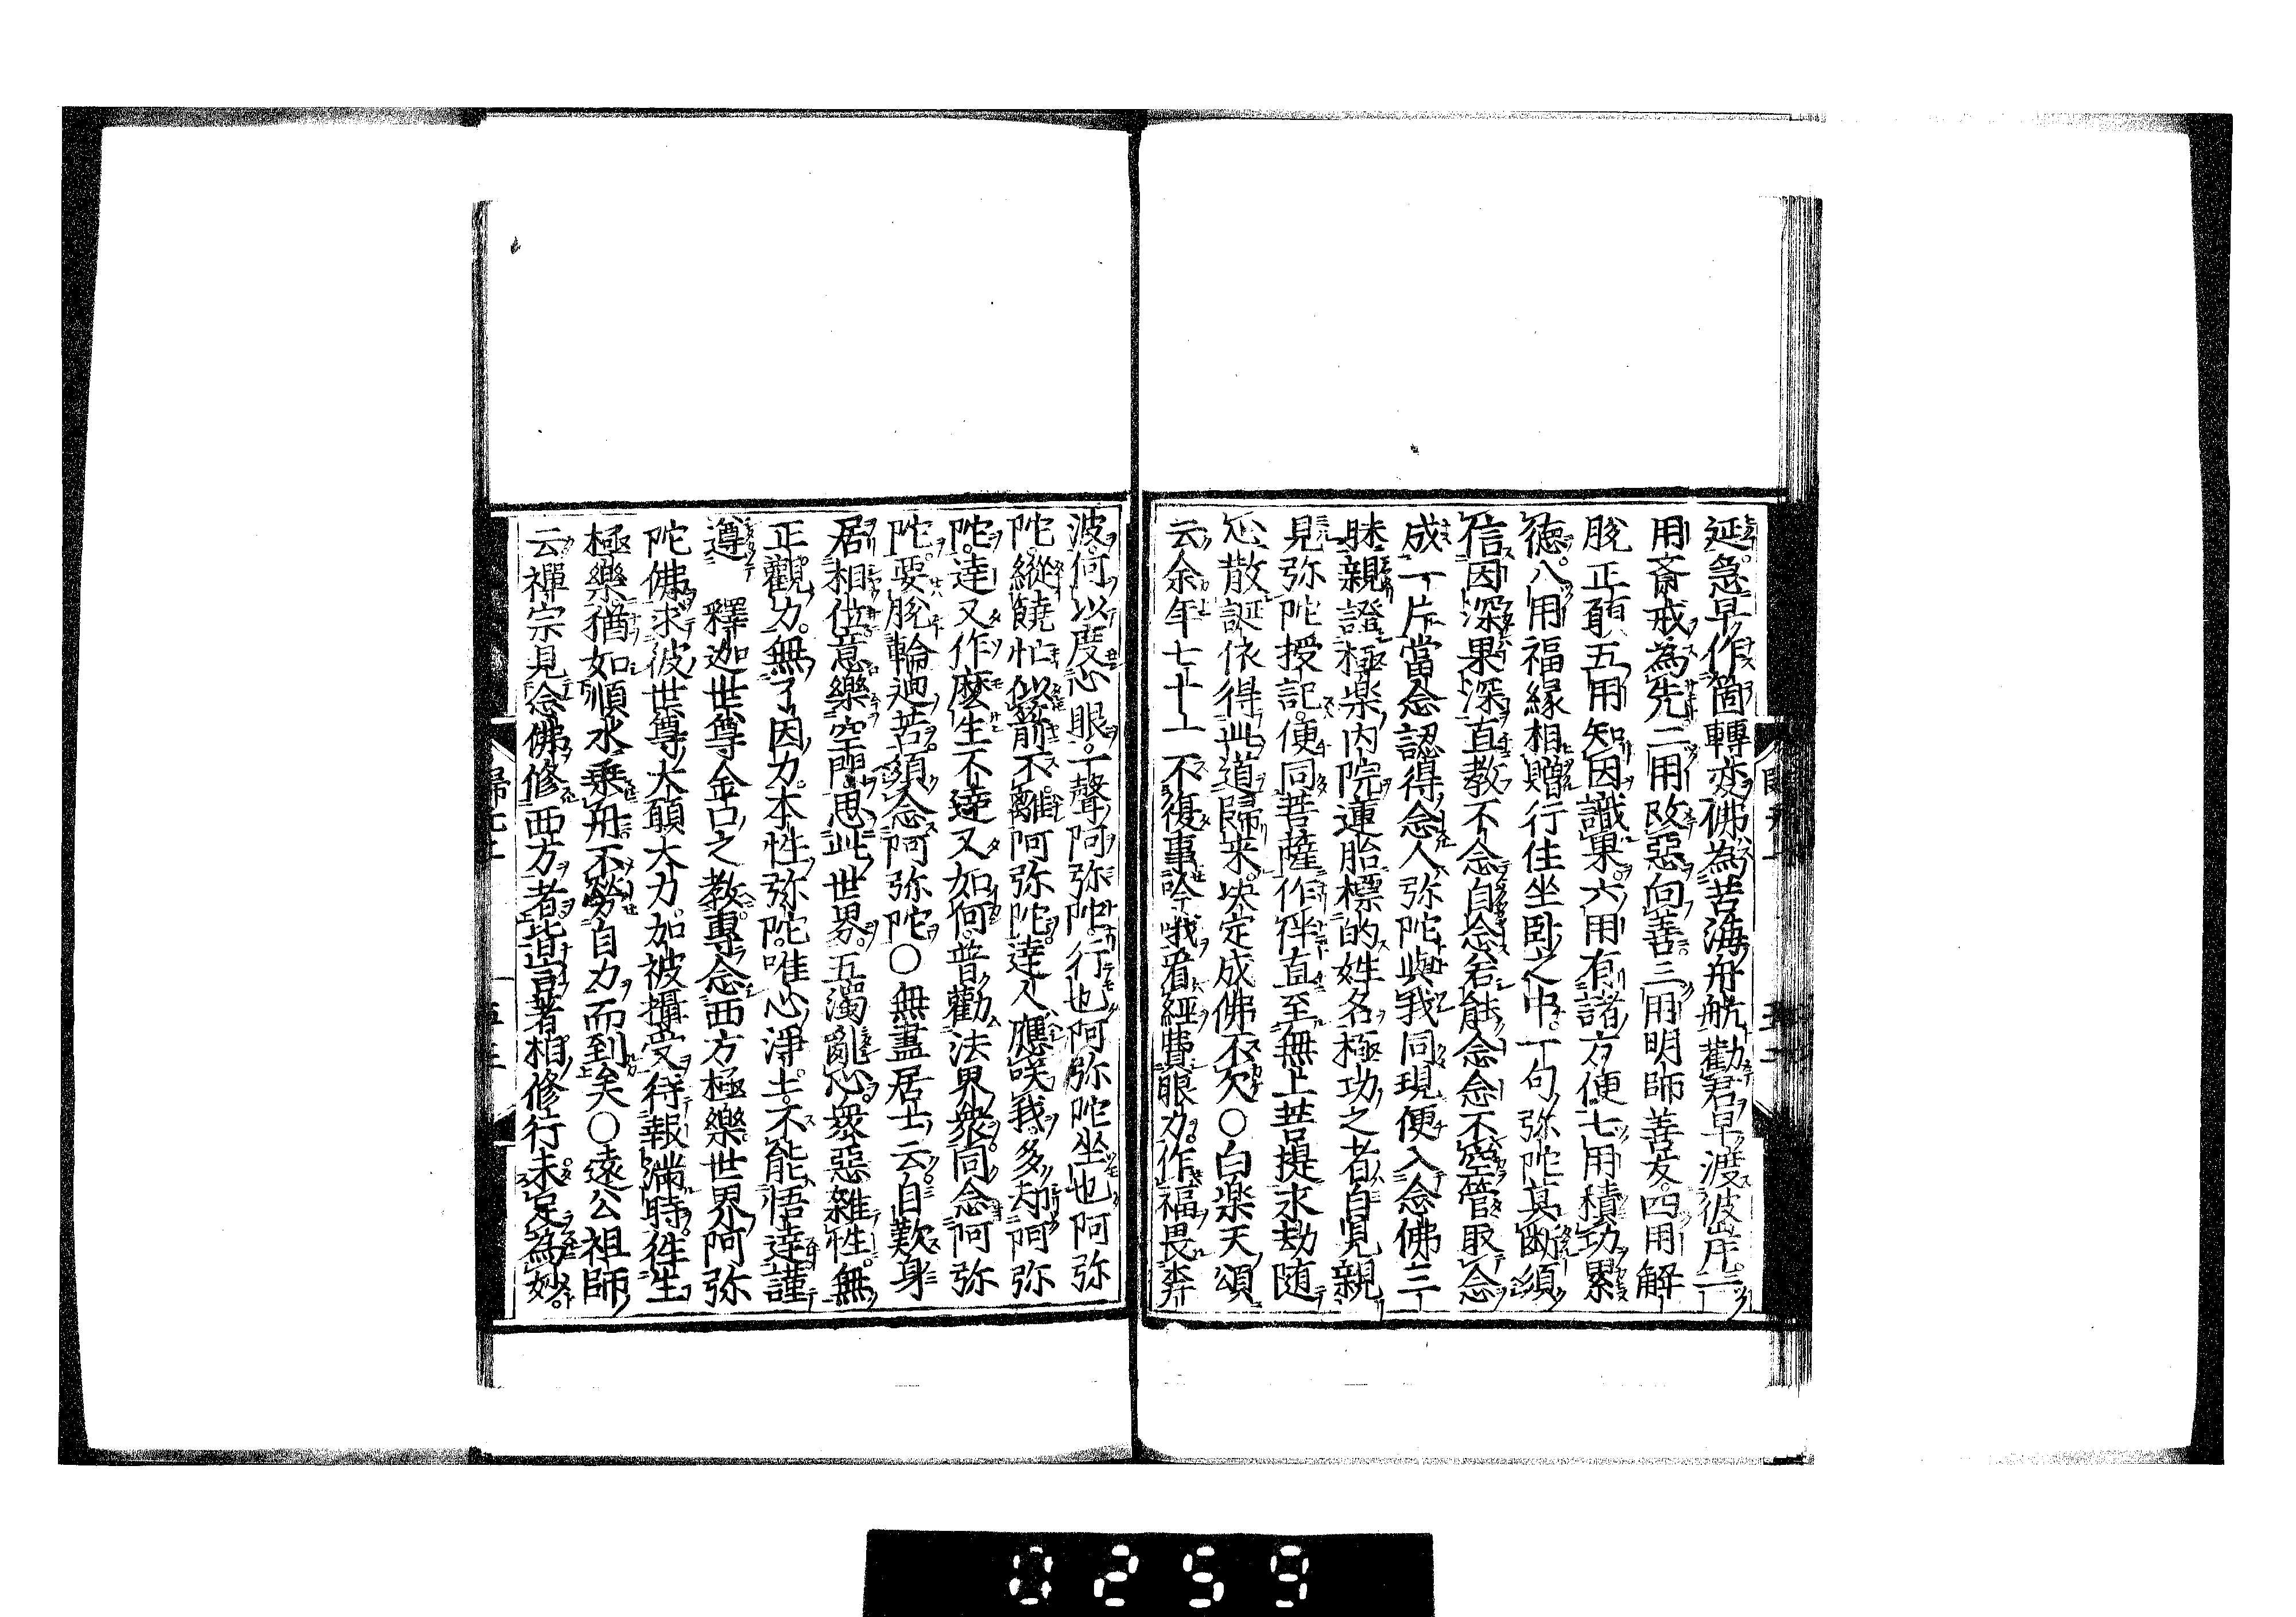 延急早作箇轉変佛為苦海舟航勸君早渡彼岸一
用斎戒為先二用改惡向善三用明師善友四用解
脫正願五用知因識果六用有諸方便七用積功累
徳八用福縁相贈行住坐卧之中一句弥陀莫断須
信因深果深直教不念自念若能念念不空管取念
成一片當念認得念人弥陀與我同現便入念佛三
昧親證極楽内院蓮胎標的姓名極功之者自見親
見弥陀授記便同菩薩作伴直至無上菩提永劫随
心散誕依得此道歸来决定成佛不欠〇白楽天頌
云余年七十一不復事吟哦看經費眼力作福畏奔
波何以度心眼一聲阿弥陀行也阿弥陀坐也阿弥
陀縱饒忙似箭不離阿弥陀達人應咲我多却阿弥
陀達又作麽生不達又如何普勸法界衆同念阿弥
陀要脫輪迴苦須念阿弥陀〇無盡居士云自歎身
居相位意樂空門思此世界五濁亂心衆惡雜性無
正觀力無了因力本性弥陀唯心淨土不能悟達謹
遵　釋迦世尊金口之教專念西方極樂世界阿弥
陀佛求彼世尊大願大力加被攝受待報滿時徃生
極樂猶如順水乗舟不勞自力而到矣〇遠公祖師
云禪宗見念佛修西方者皆言著相修行未足為妙
0259